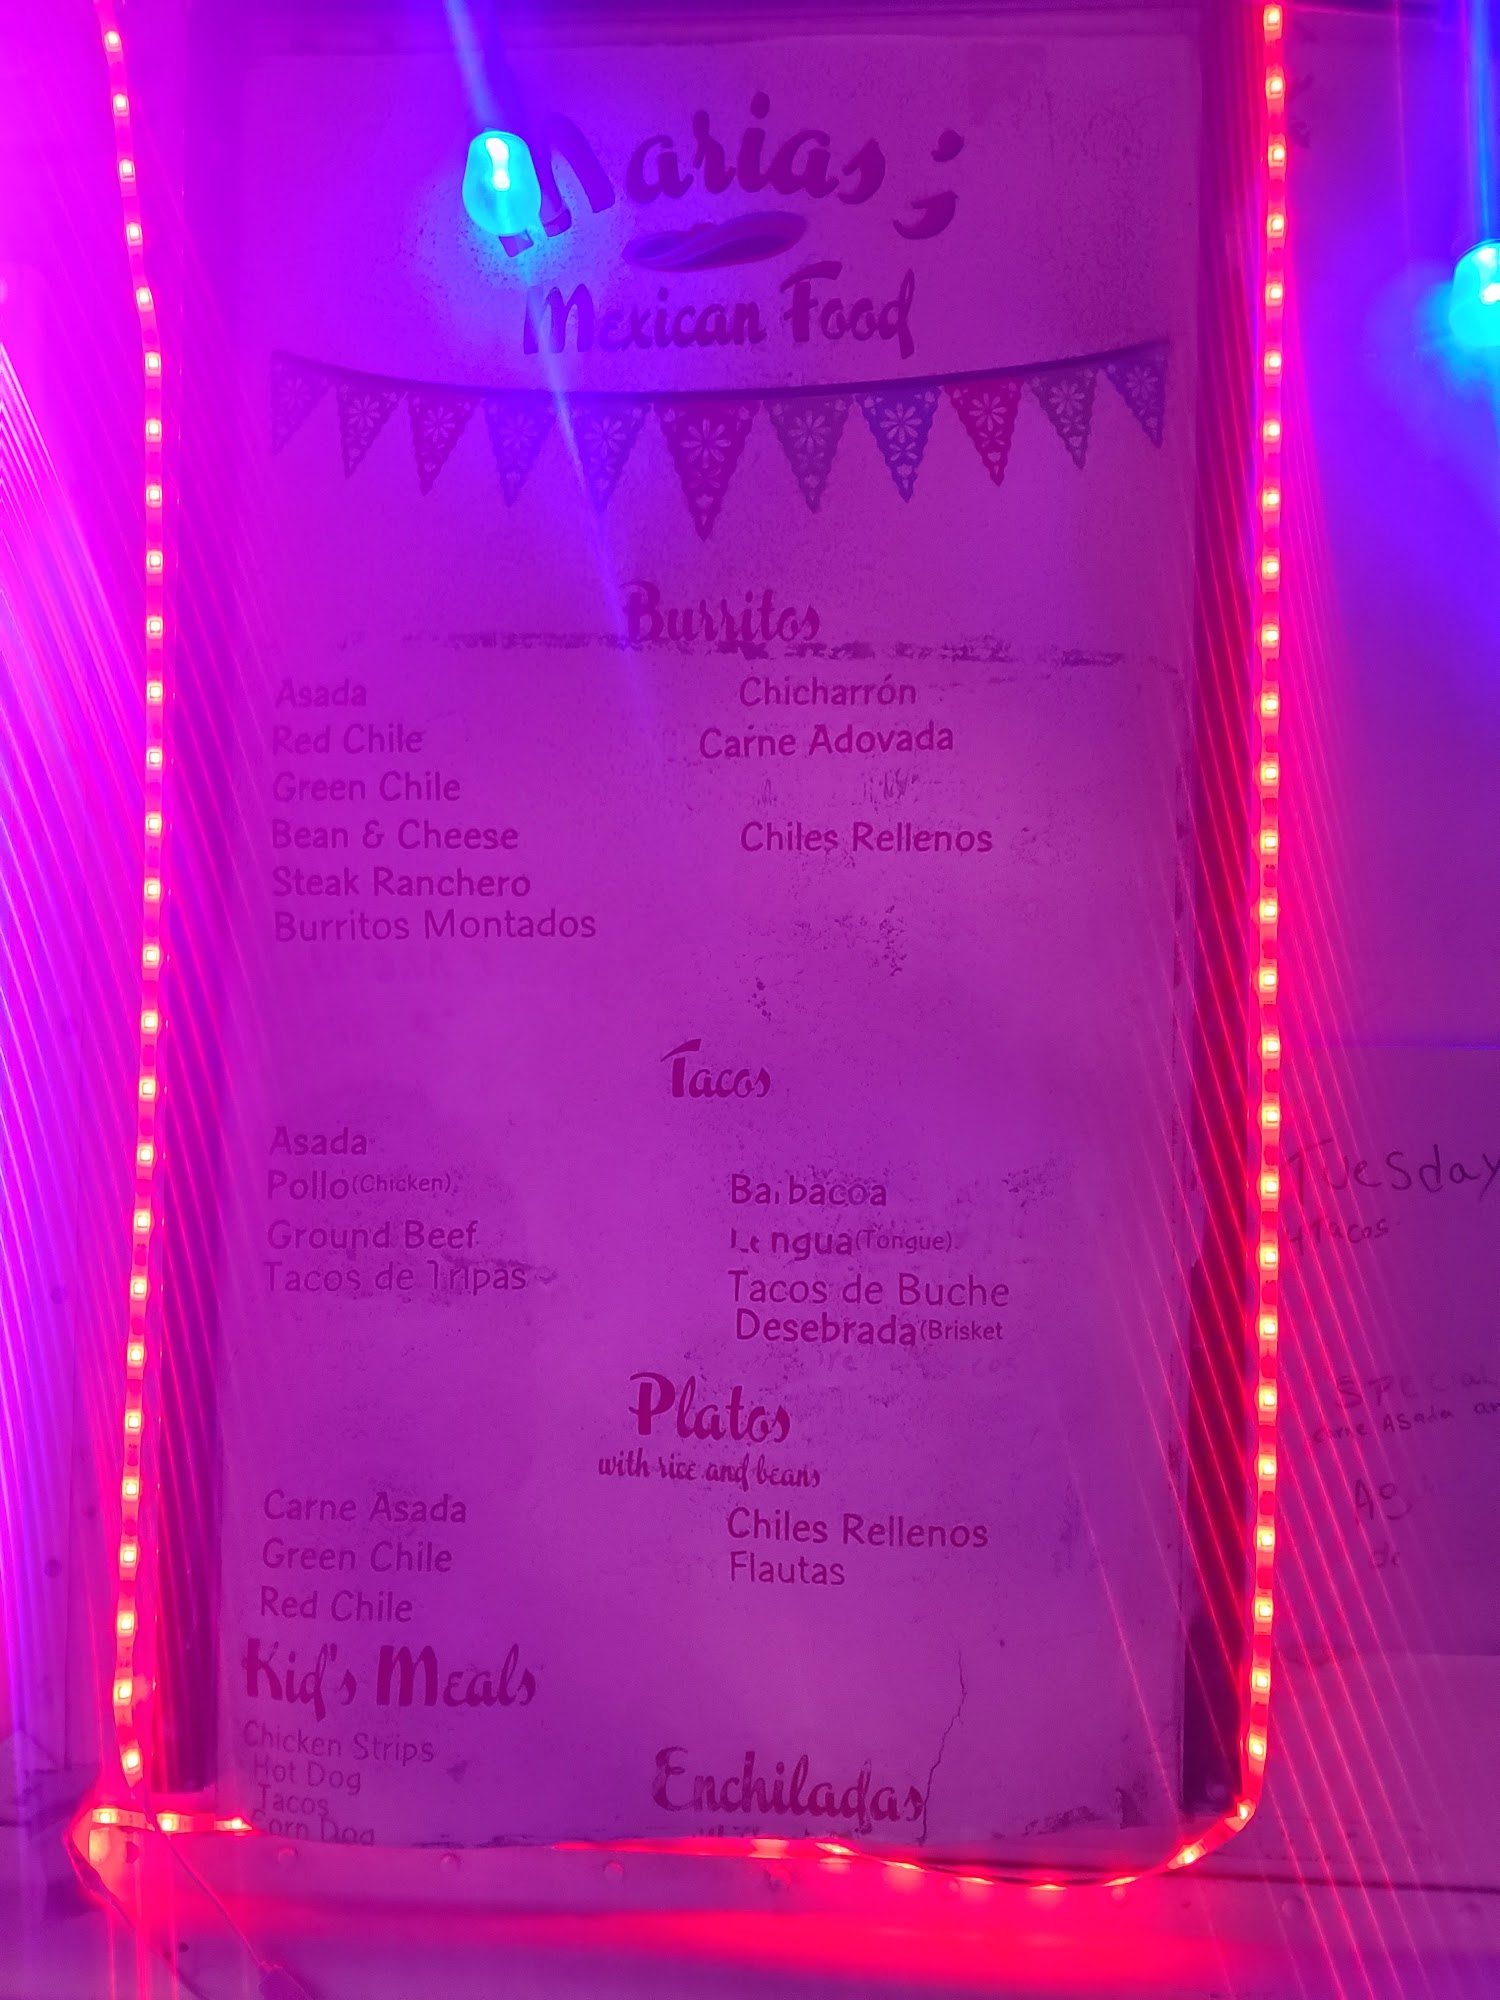 Marias
Mexican Food
Burritos
Asada
Red Chile
Green Chile
Bean & Cheese
Steak Ranchero
Burritos Montados
Chicharrón
Carne Adovada
Chiles Rellenos
Tacos
Asada
Pollo (Chicken)
Ground Beef
Tacos de Tripas
Barbacoa
Lengua (Tongue)
Tacos de Buche
Desebrada (Brisket
Platos
with rice and beans
Carne Asada
Green Chile
Red Chile
Chiles Rellenos
Flautas
Kid's Meals
Chicken Strips
Hot Dog
Tacos
Corn Dog
Enchiladas
Tuesday
4 Tacos
Special
Carne Asada